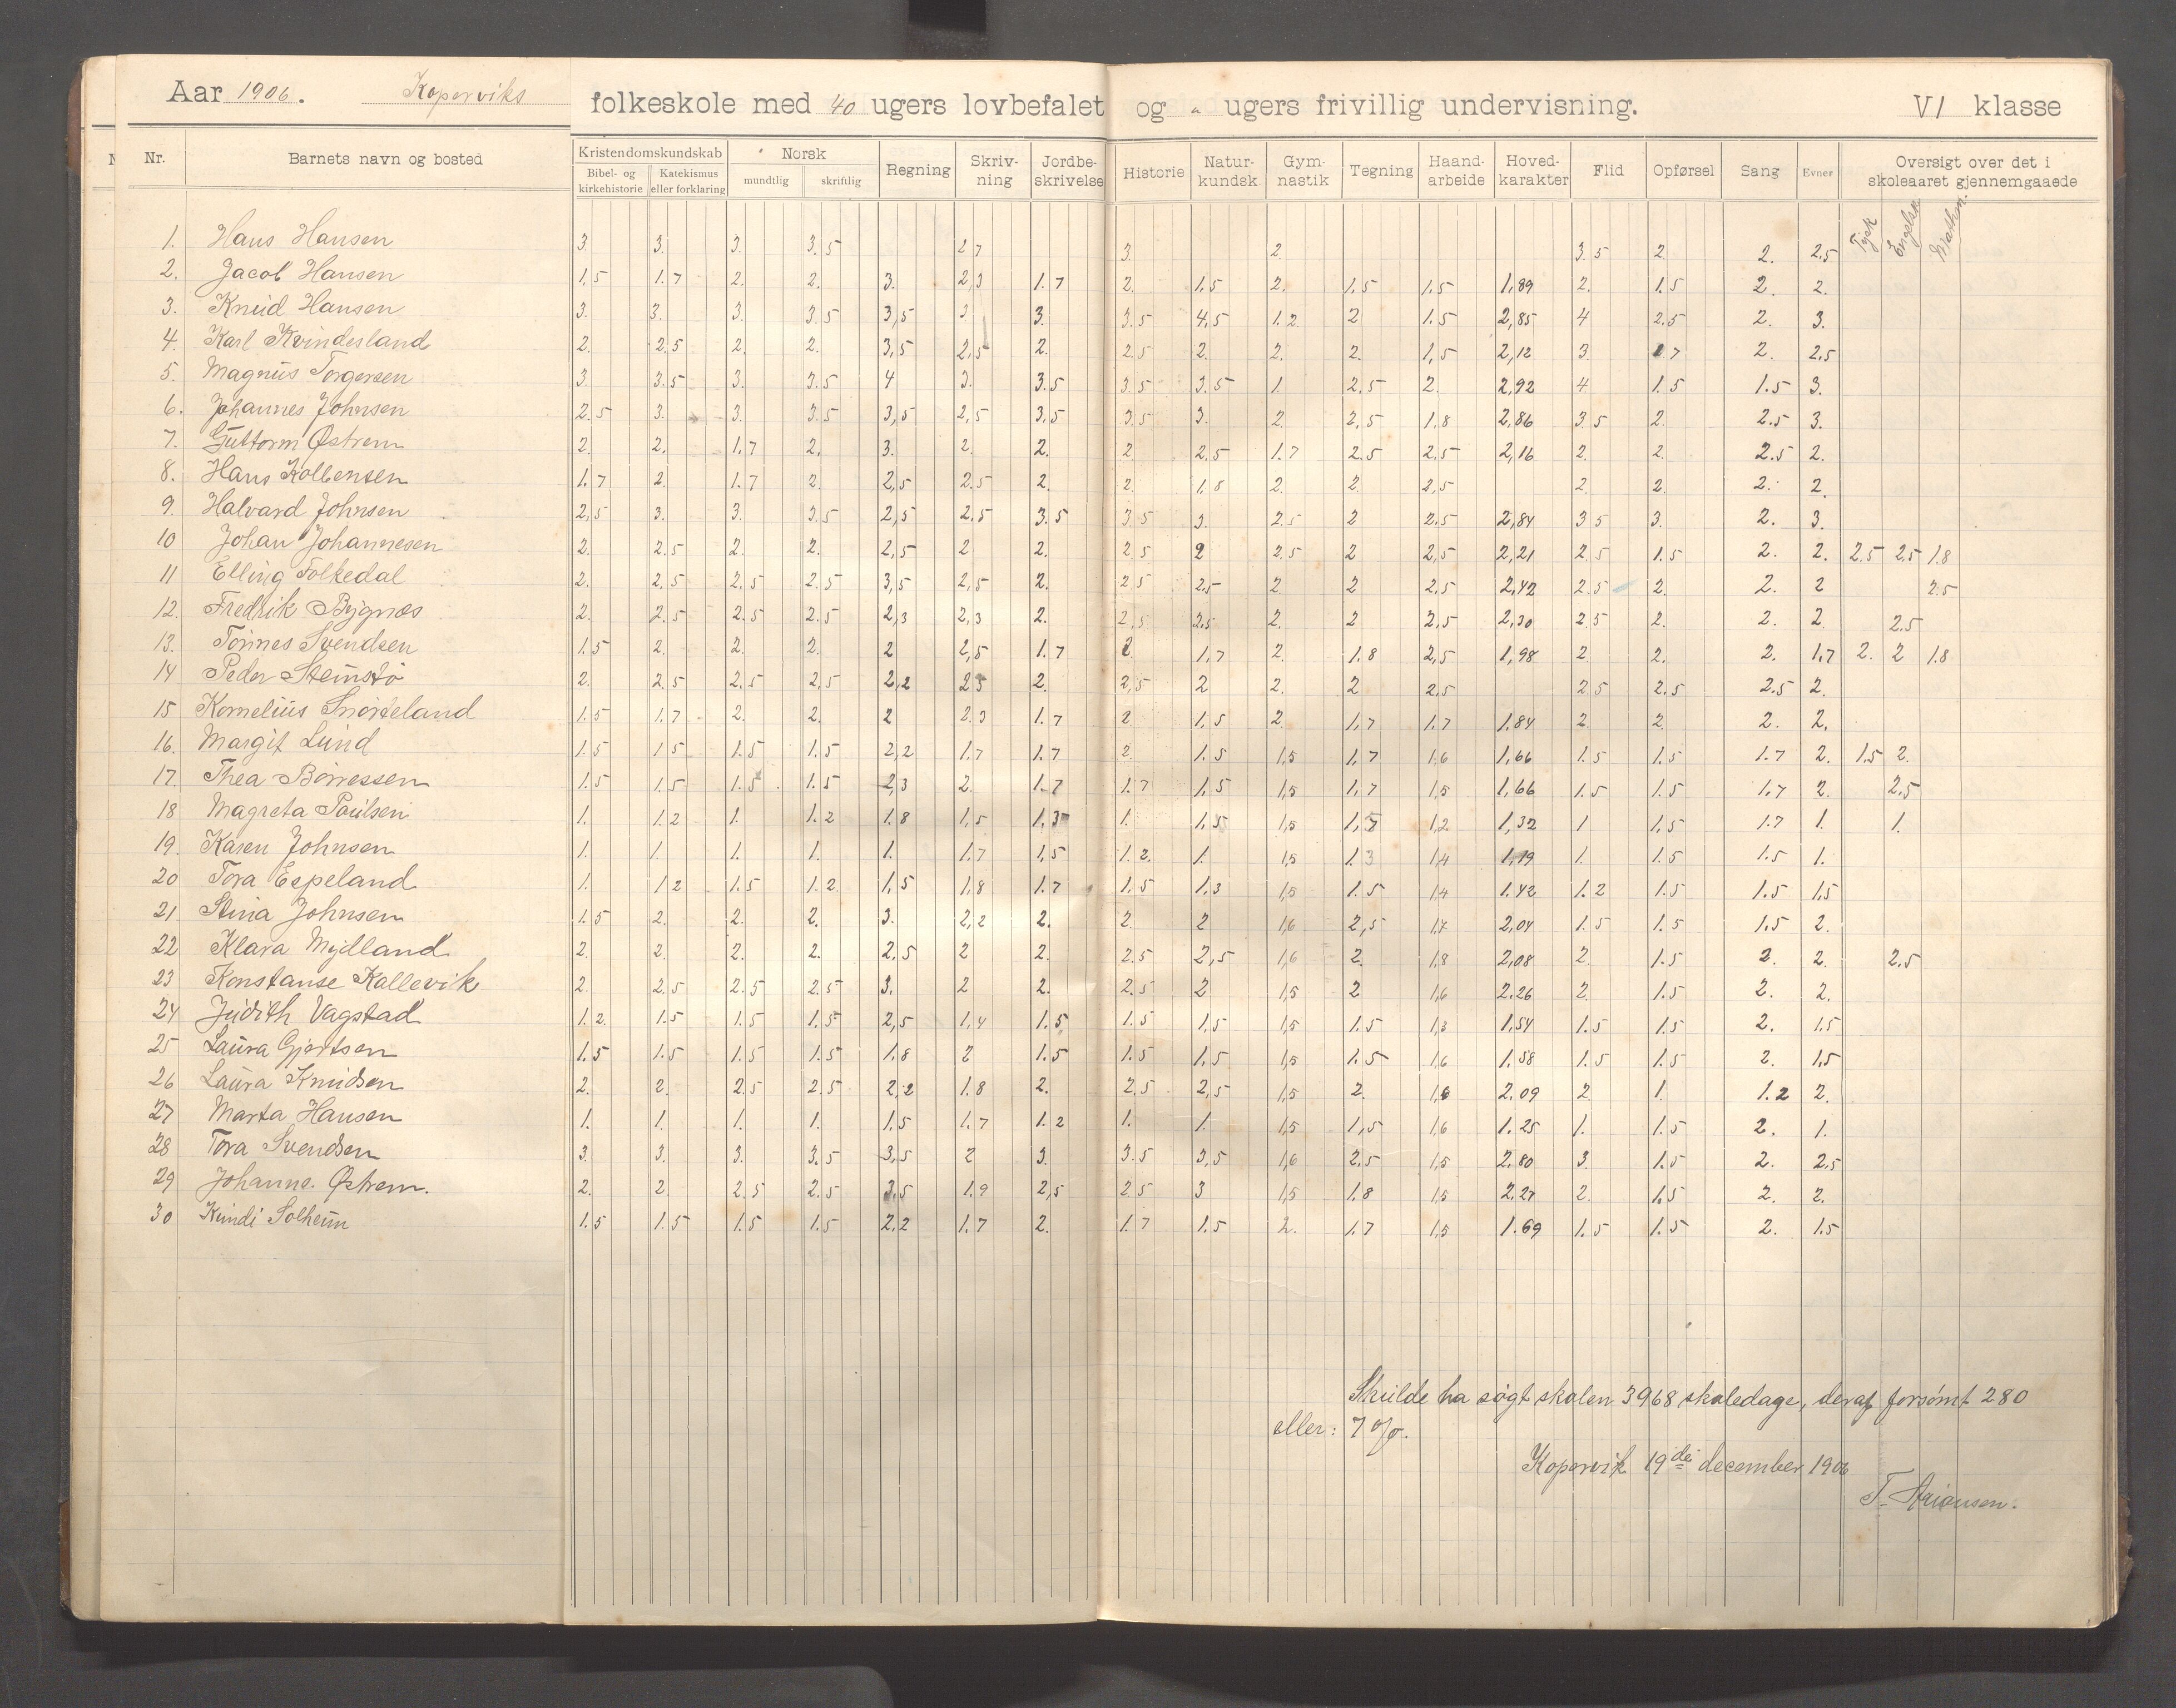 Aar 1906. Koperviks folkeskole med 40 ugers lovbefalet og " ugers frivillig undervisning. VI klasse
Nr. Barnets navn og bosted Kristendomskundskab Norsk Regning Skriv-ning Jordbe-skrivelse Historie Natur-kundsk. Gym-nastik Tegning Haand-arbeide Hoved-karakter Flid Opførsel Sang Evner Oversigt over det i skoleaaret gjennemgaaede
Bibel- og kirkehistorie Katekismus eller forklaring mundtlig skriftlig
Tysk Engelsk Mathm.
1. Hans Hansen 3. 3. 3. 3.5 2 7 3. 2. 3.5 2 2. 2.5
2. Jacob Hansen 1,5 1.7 2. 2. 3. 2,3 1.7 2. 1.5 2. 1.5 1.5 1,89 2. 1.5 2. 2.
3. Knud Hansen 3. 3. 3. 3.5 3,5 3 3. 3.5 4,5 1.2 2 1.5 2,85 4 2.5 2. 3.
4. Karl Kvindesland 2. 2.5 2. 2. 3,5 2,5 2. 2.5 2. 2. 2. 1,5 2,12 3. 1.7 2. 2.5
5. Magnus Torgersen 3. 3.5 3. 3.5 4 3. 3.5 3.5 3.5 1. 2.5 2. 2,92 4 1.5 1.5 3.
6. Johannes Johnsen 2.5 3. 3. 3.5 3,5 2,5 3,5 3.5 3. 2. 2,5 1,8 2,86 3.5 2. 2.5 3.
7. Guttorm Østrem 2. 2. 1.7 2. 3. 2. 2. 2 2.5 1.7 2.5 2.5 2,16 2. 2. 2.5 2.
8. Hans Kolbensen 1.7 2. 1.7 2. 2,5 2.5 2. 2. 1.8 2. 2. 2,5 2. 2. 2. 2.
9. Halvard Johnsen 2,5 3. 3. 3.5 2,5 2.5 3.5 3.5 3. 2.5 2 2.5 2,84 3.5 3. 2. 3.
10 Johan Johannesen 2. 2.5 2. 2. 2,5 2 2. 2.5 2 2.5 2 2,5 2,21 2.5 1.5 2. 2. 2.5 2.5 1.8
11 Elling Folkedal 2. 2.5 2.5 2.5 3,5 2,5 2. 2.5 2.5 2 2 2,5 2,42 2.5 2. 2. 2 2.5
12. Fredrik Bygnes 2. 2.5 2.5 2.5 2,3 2,3 2. 2,5 2.5 2. 2 2,5 2,30 2.5 2. 2. 2. 2.5
13. Tønnes Svendsen 1.5 2. 2. 2. 2 2,5 1.7 2 1.7 2. 1.8 2,5 1,98 2. 2. 2. 1.7 2. 2 1.8
14 Peder Stensto 2. 2.5 2.5 2,5 2,2 2 3 2. 2,5 2 2. 2 2,5 2.5 2.5 2.5 2.
15 Kornelius Snorteland 1.5 1.7 2. 2. 2 2.3 1.7 2 1.5 2. 1,7 1.7 1,84 2. 2. 2. 2.
16. Margit Lund 1.5 1.5 1.5 1.5 2,2 1.7 1.7 2. 1.5 1,5 1,7 1,6 1,66 1.5 1.5 1.7 2. 1.5 2.
17. Thea Børressen 1.5 1.5 1.5 1.5 2,3 2. 1.7 1.7 1,5 1,5 1,7 1,5 1,66 1.5 1.5 1,7 2. 2,5
18 Magreta Paulsen 1. 1.2 1. 1.2 1.8 1,5 1,3 1. 1,5 1,5 1,5 1,2 1,32 1 1,5 1.7 1. 1.
19. Karen Johnsen 1. 1. 1. 1. 1. 1.7 1,5 1.2. 1. 1,5 1.3 1,4 1,19 1. 1.5 1.5 1.
20 Tora Espeland 1. 1 2 1.5 1.2. 1,5 1,8 1.7 1.5 1,3 1,5 1.5 1,4 1.42 1.2 1.5 1.5 1.5
21 Stina Johnsen 1.5 2. 2. 2. 3. 2,2 2. 2. 2 1,6 2,5 1,7 2,04 1.5 1.5 1.5 2.
22 Klara Mydland 2. 2. 2. 2. 2,5 2 2. 2.5 2,5 1,6 2. 1,8 2,08 2. 1.5 2. 2. 2.5
23 Konstanse Kallevik 2. 2.5 2.5 2.5 3. 2 2. 2.5 2 1,5 2 1,6 2.26 2. 1.5 2. 2.
24 Judith Vagstad 1.2. 1.5 1.5 1.5 2,5 1,4 1.5 1.5 1,5 1,5 1.5 1,3 1,54 1.5 1.5 2. 1.5
25 Laura Gjertsen 1.5 1.5 1.5 1.5 1.8 2 1.5 1.5 1,5 1,5 1.5 1,6 1.58 1.5 1.5 2. 1,5
26 Laura Knudsen 2. 2. 2.5 2.5 2,2 1.8 2. 2.5 2,5 1,5 2. 1,6 2.09 2 1. 1.2 2.
27 Marta Hansen 1. 1. 1. 1. 1,5 1.7 1.2 1. 1. 1,5 1,5 1,6 1.25 1. 1.5 2. 1.
28 Tora Svendsen 3. 3. 3. 3.5 3,5 2 3. 3.5 3,5 1,6 2.5 1,5 2.80 3. 1.5 2. 2.5
29 Johanne. Østrem. 2. 2. 2.5 2.5 3,5 1.9 2,5 2.5 3 1,5 1.8 1,5 2.27 2. 1.5 2. 2.
30 Kundi Solheim 1.5 1.5 1.5 1.5 2.2 1.7 2. 1.7 1.5 2. 1.7 1,5 1.69 1.5 1.5 2. 1.5
Skulde ha søgt skolen 3968 skoledage, deraf forsømt 280
eller: 7 o/o.
Kopervik 19de december 1906
T. Ariansen.